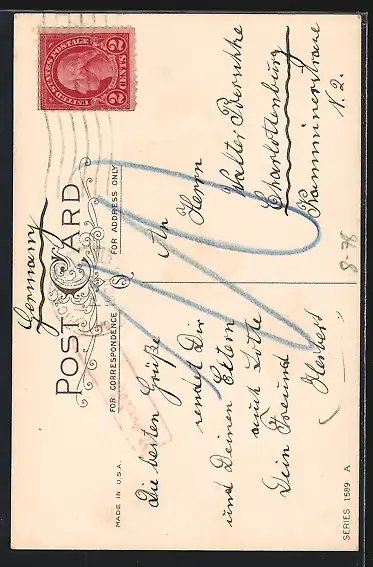 UNITED STATES POSTAGE
2 CENTS 2
Germany
POST CARD
FOR CORRESPONDENCE
FOR ADDRESS ONLY
MADE IN U.S.A.
Die besten Grüße
sendet Dir
und Deinen Eltern
auch Lotte
Dein Freund
Herbert
An
Herrn
Walter
Charlottenburg
N. 2.
8-78
SERIES 1589 A